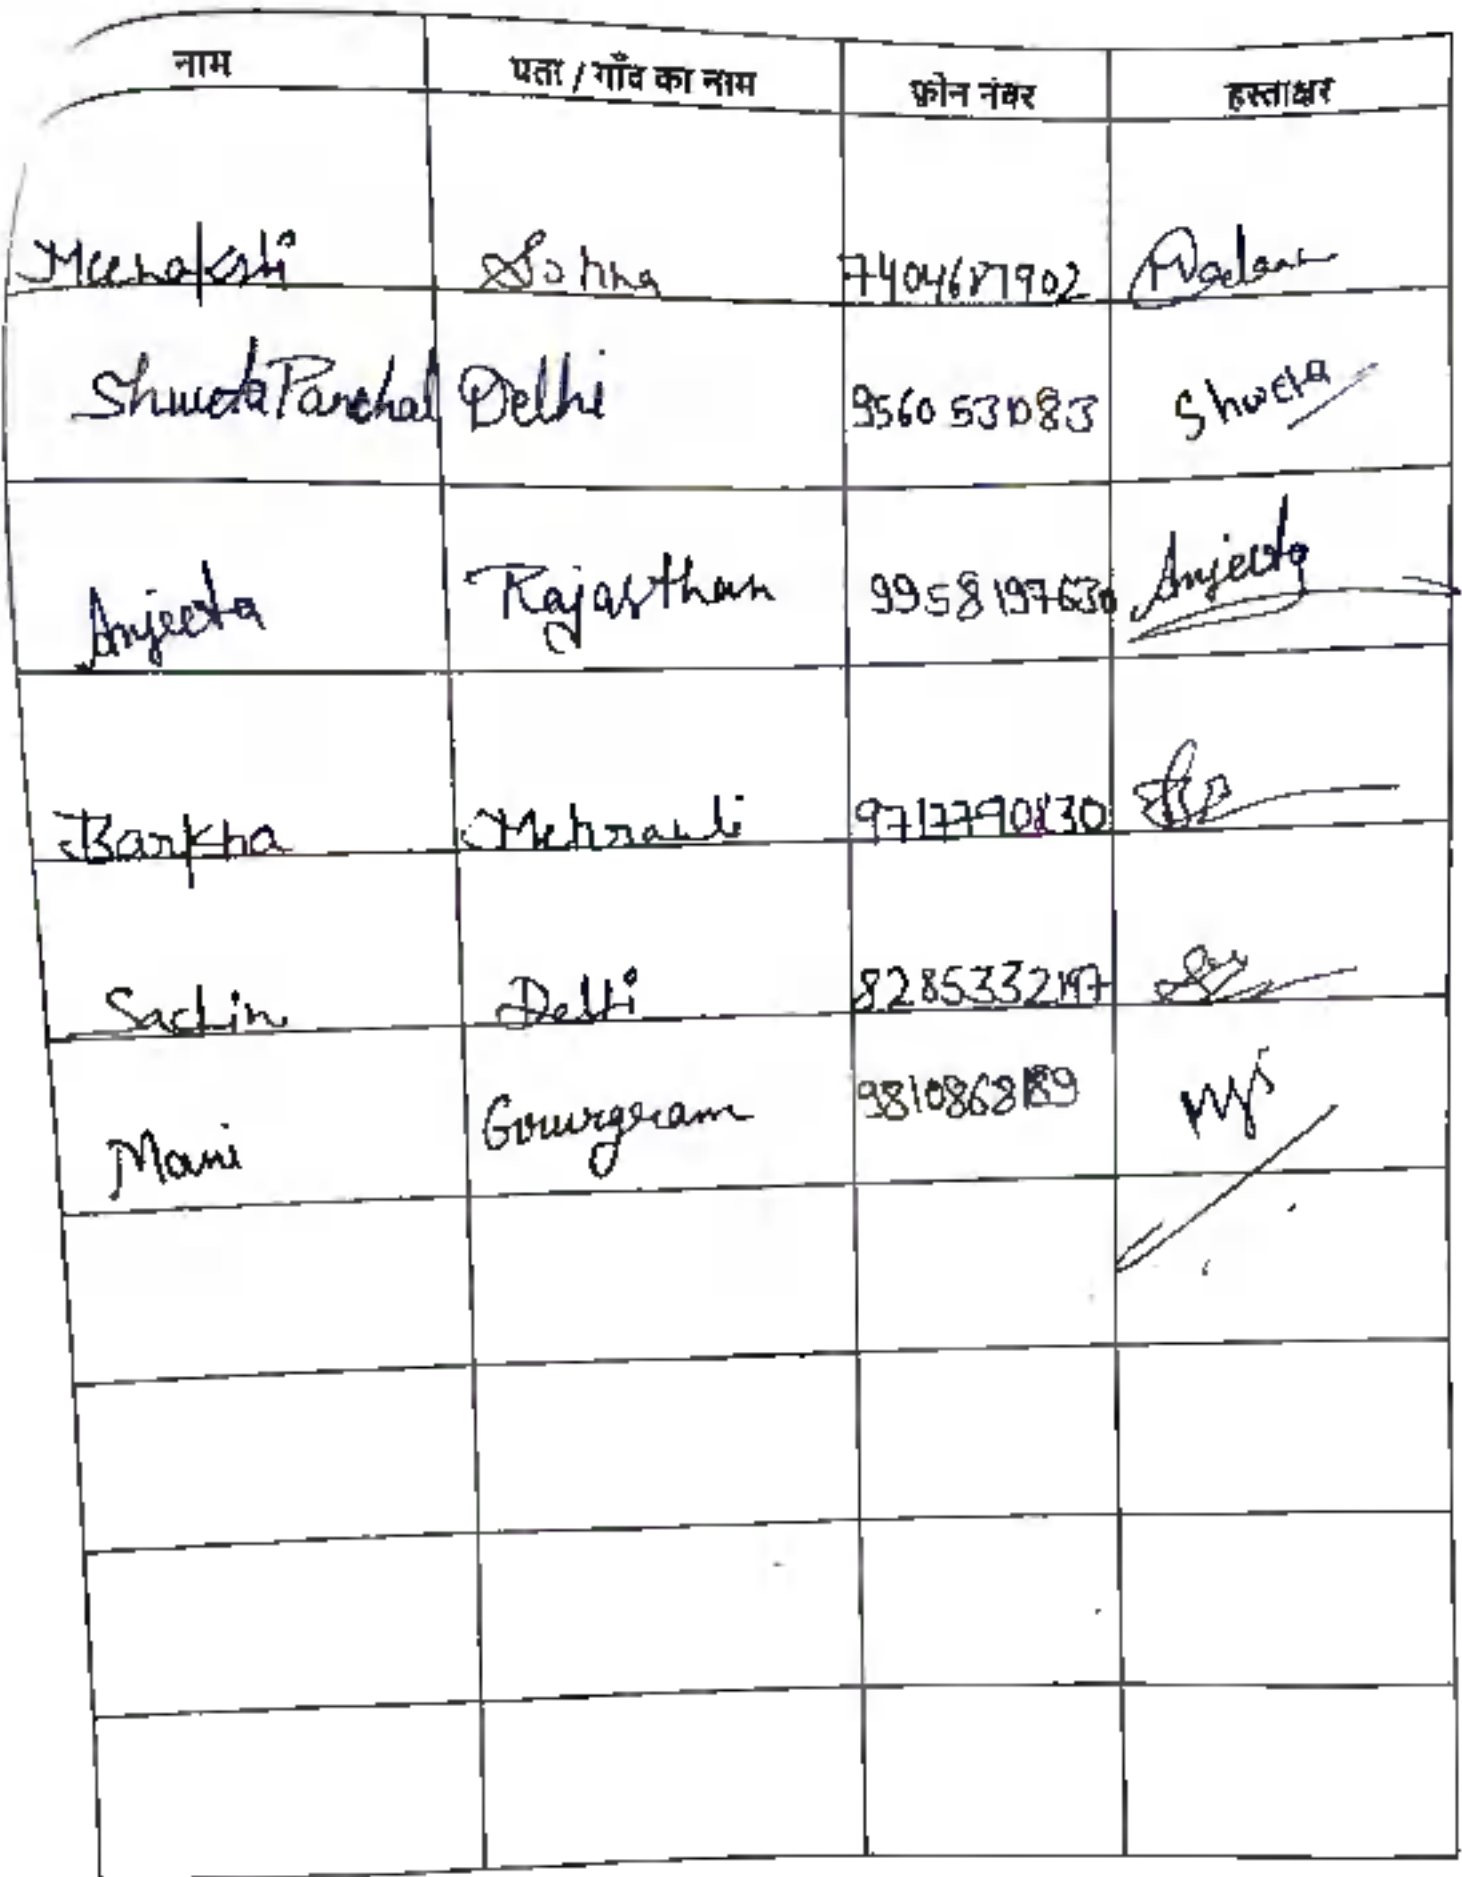 नाम पता / गाँव का नाम फ़ोन नंबर हस्ताक्षर
Meenakshi Sohna 7404687902
Shweta Panchal Delhi 9560531083 Shweta
Anjeeta Rajasthan 9958197630 Anjeeta
Barkha Mehrauli 9717790830
Sachin Delhi 8285332197
Mani Gourgram 9810868189